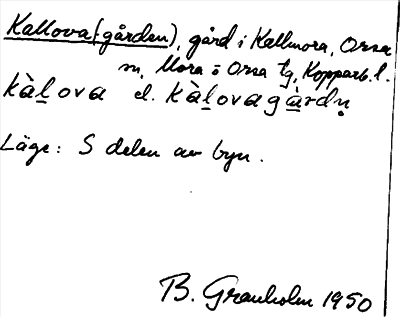 Kallova(-gården), gård i Kallmora, Orsa
sn, Mora o Orsa tg, Kopparb. l.
kàl̲ova el. kàl̲ovagà̲rdṇ
Läge: S delen av byn.
B. Granholm 1950